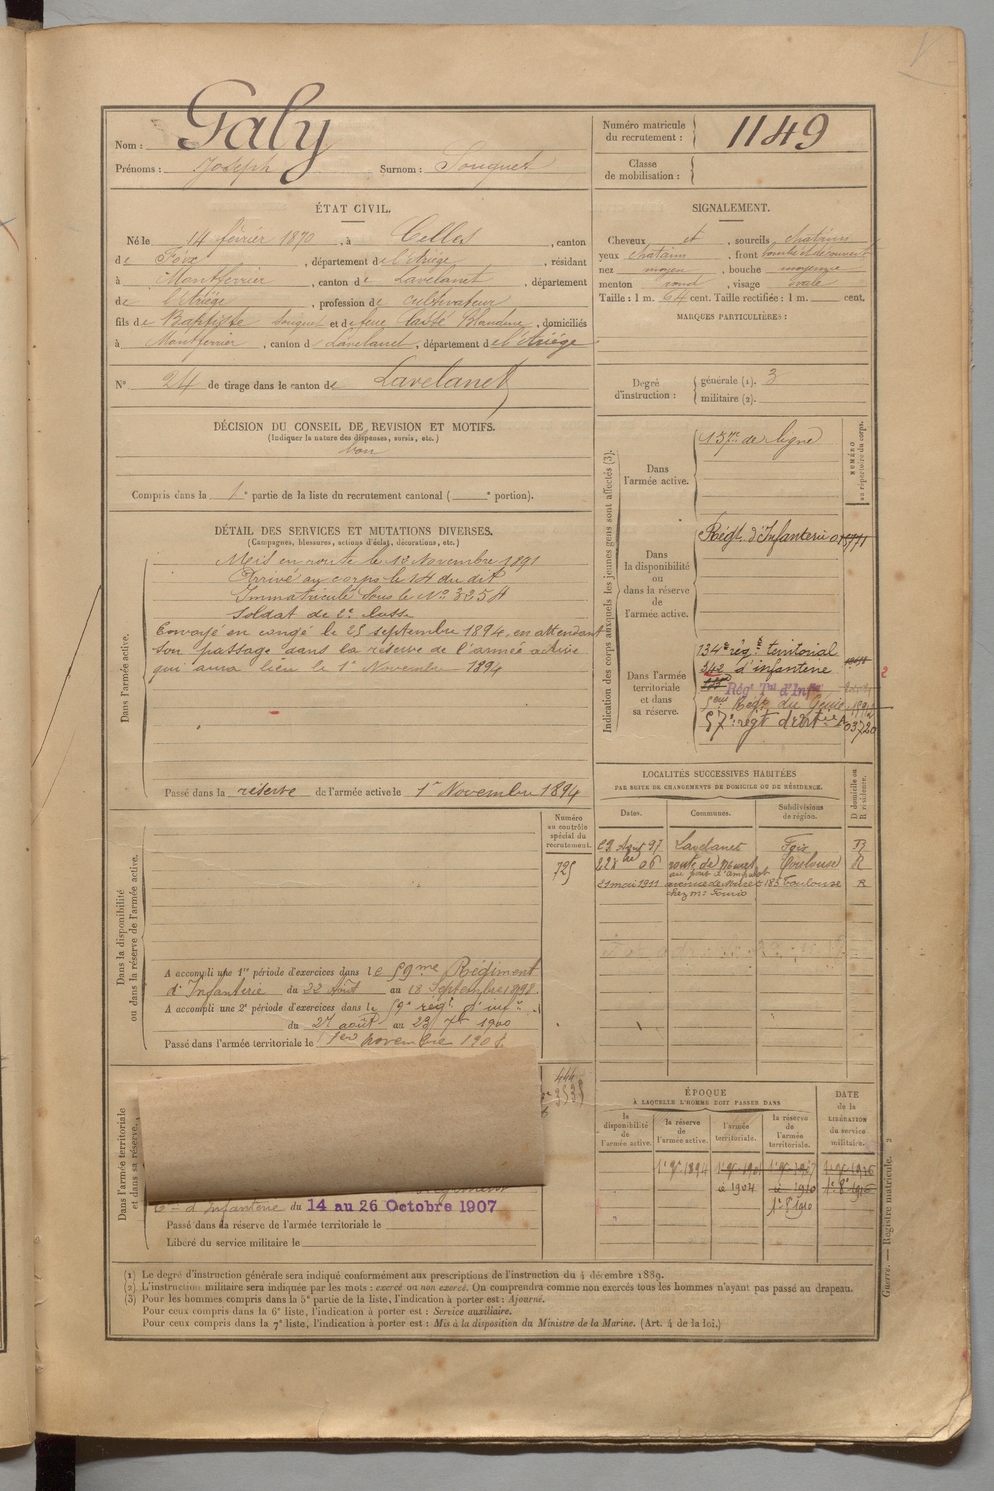 Nom : Galy
Prénoms : Joseph Surnom : Souquet
Numéro matricule du recrutement : 1149
Classe de mobilisation :
ÉTAT CIVIL.
Né le 14 février 1870, à Celles, canton
de Foix, département de l'Ariège, résidant
à Montferrier, canton de Lavelanet, département
de l'Ariège, profession de cultivateur
fils de Baptiste Souquet et de feue Blandine, domiciliés
à Montferrier, canton de Lavelanet, département de l'Ariège
N° 24 de tirage dans le canton de Lavelanet
SIGNALEMENT.
Cheveux et, sourcils chatains
yeux chatains, front bombé et découvert
nez moyen, bouche moyenne
menton rond, visage ovale
Taille : 1 m. 64 cent. Taille rectifiée : 1 m. cent.
MARQUES PARTICULIÈRES :
Degré d'instruction : générale (1). 3
militaire (2).
DÉCISION DU CONSEIL DE REVISION ET MOTIFS.
(Indiquer la nature des dispenses, sursis, etc.)
bon
Compris dans la 1e partie de la liste du recrutement cantonal ( e portion).
DÉTAIL DES SERVICES ET MUTATIONS DIVERSES.
(Campagnes, blessures, actions d'éclat, décorations, etc.)
Dans l'armée active.
Mis en route le 12 Novembre 1891
Arrivé au corps le 14 du dit
Immatriculé sous le N° 3254
Soldat de 2e classe
Envoyé en congé le 25 septembre 1894, en attendant
son passage dans la réserve de l'armée active
qui aura lieu le 1er Novembre 1894
Passé dans la réserve de l'armée active le 1er Novembre 1894
Indication des corps auxquels les jeunes gens sont affectés (3).
NUMÉRO au répertoire du corps.
Dans l'armée active.
Dans la disponibilité ou dans la réserve de l'armée active.
Dans l'armée territoriale et dans sa réserve.
de ligne
Régt. d'Infanterie
134e rég.t territorial
342 d'infanterie
Régt Tal d'Inf
Régt du Génie
57e régt d'Art
LOCALITÉS SUCCESSIVES HABITÉES
PAR SUITE DE CHANGEMENTS DE DOMICILE OU DE RÉSIDENCE.
Dates. Communes. Subdivisions de région. D domicile ou R résidence.
Lavelanet Foix
06 route de Muret Toulouse R
21 mai 1911 Toulouse R
Dans la disponibilité ou dans la réserve de l'armée active.
Numéro au contrôle spécial du recrutement.
725
A accompli une 1re période d'exercices dans le 59me Régiment
d'Infanterie du 22 Août au 18 Septembre 1898.
A accompli une 2e période d'exercices dans le 59e régt d'inf
du 27 août au 23 7bre 1900
Passé dans l'armée territoriale le 1er novembre 190
Dans l'armée territoriale et dans sa réserve.
d'Infanterie du 14 au 26 Octobre 1907
Passé dans la réserve de l'armée territoriale le
Libéré du service militaire le
ÉPOQUE
À LAQUELLE L'HOMME DOIT PASSER DANS
la disponibilité de l'armée active.
la réserve de l'armée active.
l'armée territoriale.
la réserve de l'armée territoriale.
DATE de la LIBÉRATION du service militaire.
1er 9bre 1894
1904
1910
(1) Le degré d'instruction générale sera indiqué conformément aux prescriptions de l'instruction du 4 décembre 1889.
(2) L'instruction militaire sera indiquée par les mots : exercé ou non exercé. On comprendra comme non exercés tous les hommes n'ayant pas passé au drapeau.
(3) Pour les hommes compris dans la 5e partie de la liste, l'indication à porter est : Ajourné.
Pour ceux compris dans la 6e liste, l'indication à porter est : Service auxiliaire.
Pour ceux compris dans la 7e liste, l'indication à porter est : Mis à la disposition du Ministre de la Marine. (Art. 4 de la loi.)
Guerre. — Registre matricule. 2